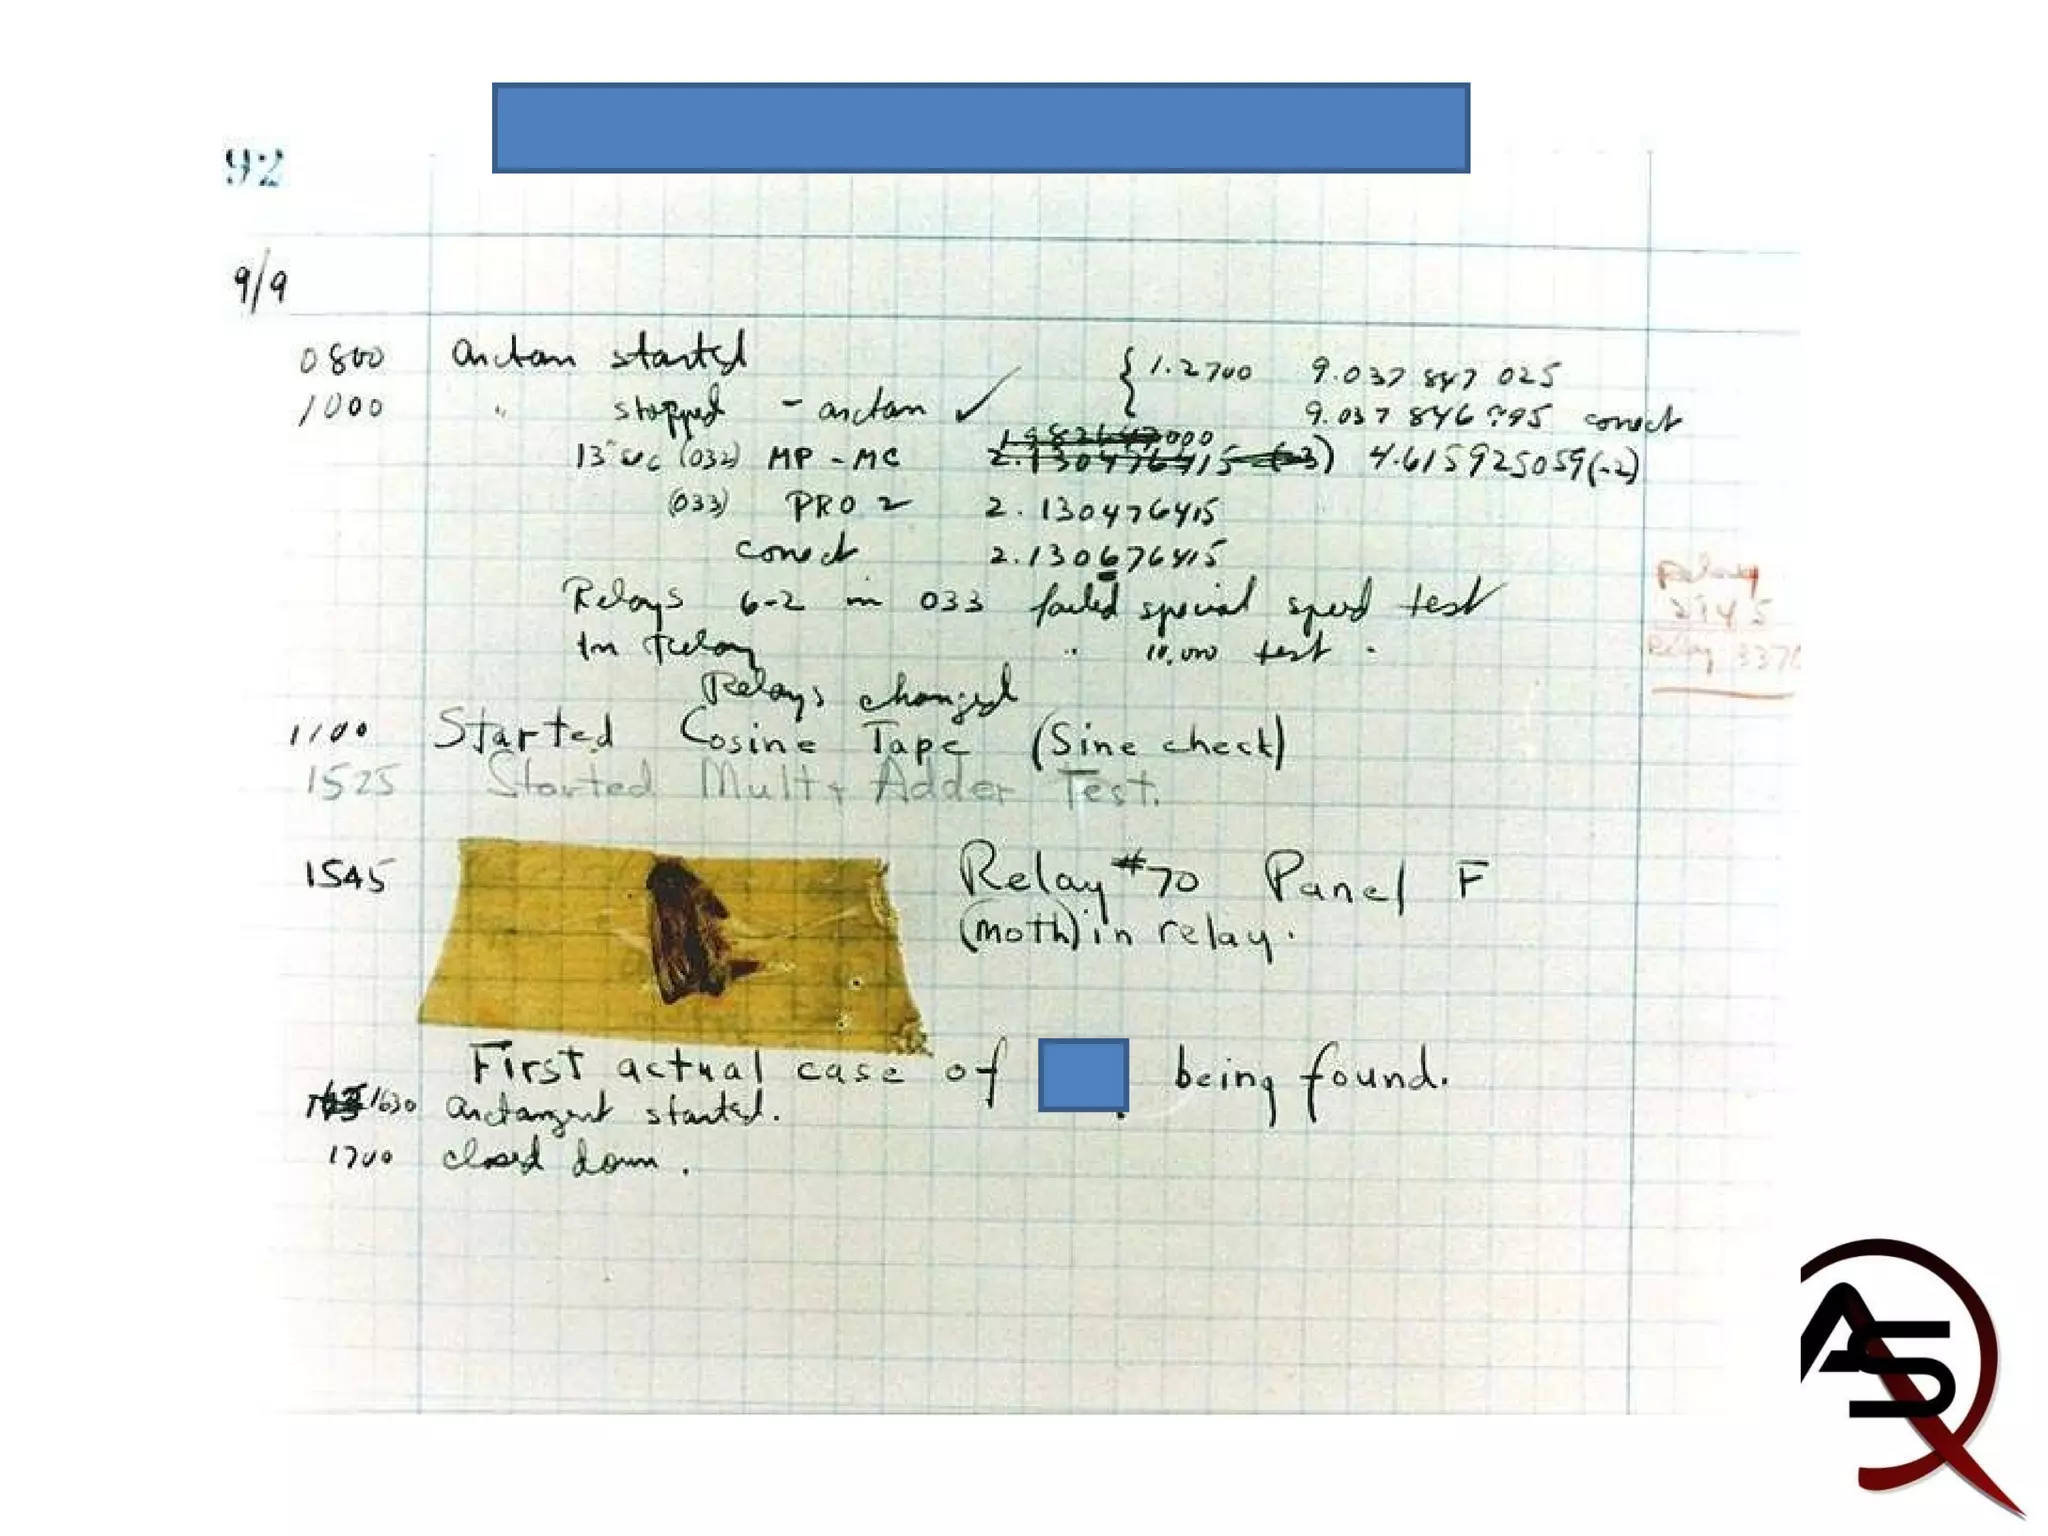 92
9/9
0800 arctan started { 1.2700 9.037 847 025
1000 " stopped - arctan ✓ 9.037 846 995 correct
13"uc (032) MP - MC 1.982647000
2.130476415 (-3) 4.615925059(-2)
(033) PRO 2 2.130476415
correct 2.130676415
Relays 6-2 in 033 failed special speed test
In Relay " 10,000 test .
Relays changed
Relay
2145
Relay 3370
1100 Started Cosine Tape (Sine check)
1525 Started Mult+Adder Test.
1545 Relay #70 Panel F
(moth) in relay.
First actual case of being found.
1630 arctangent started.
1700 closed down.
AS